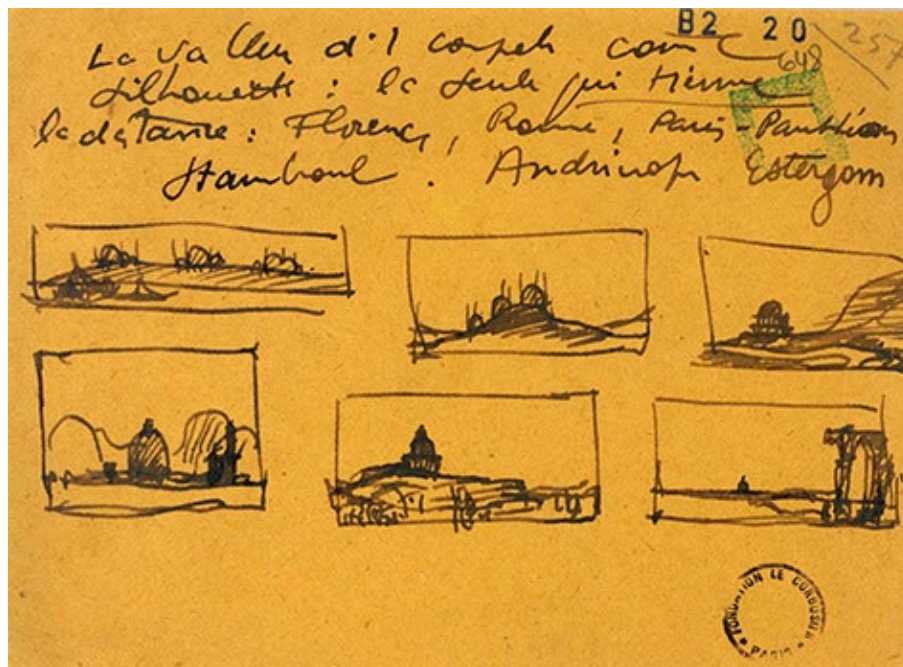 B2 20
257
648
La valeur d'1 coupole comme
silhouette : la seule qui tienne
la distance : Florence, Rome, Paris-Panthéon
Stamboul. Andrinople Estergom
FONDATION LE CORBUSIER
PARIS